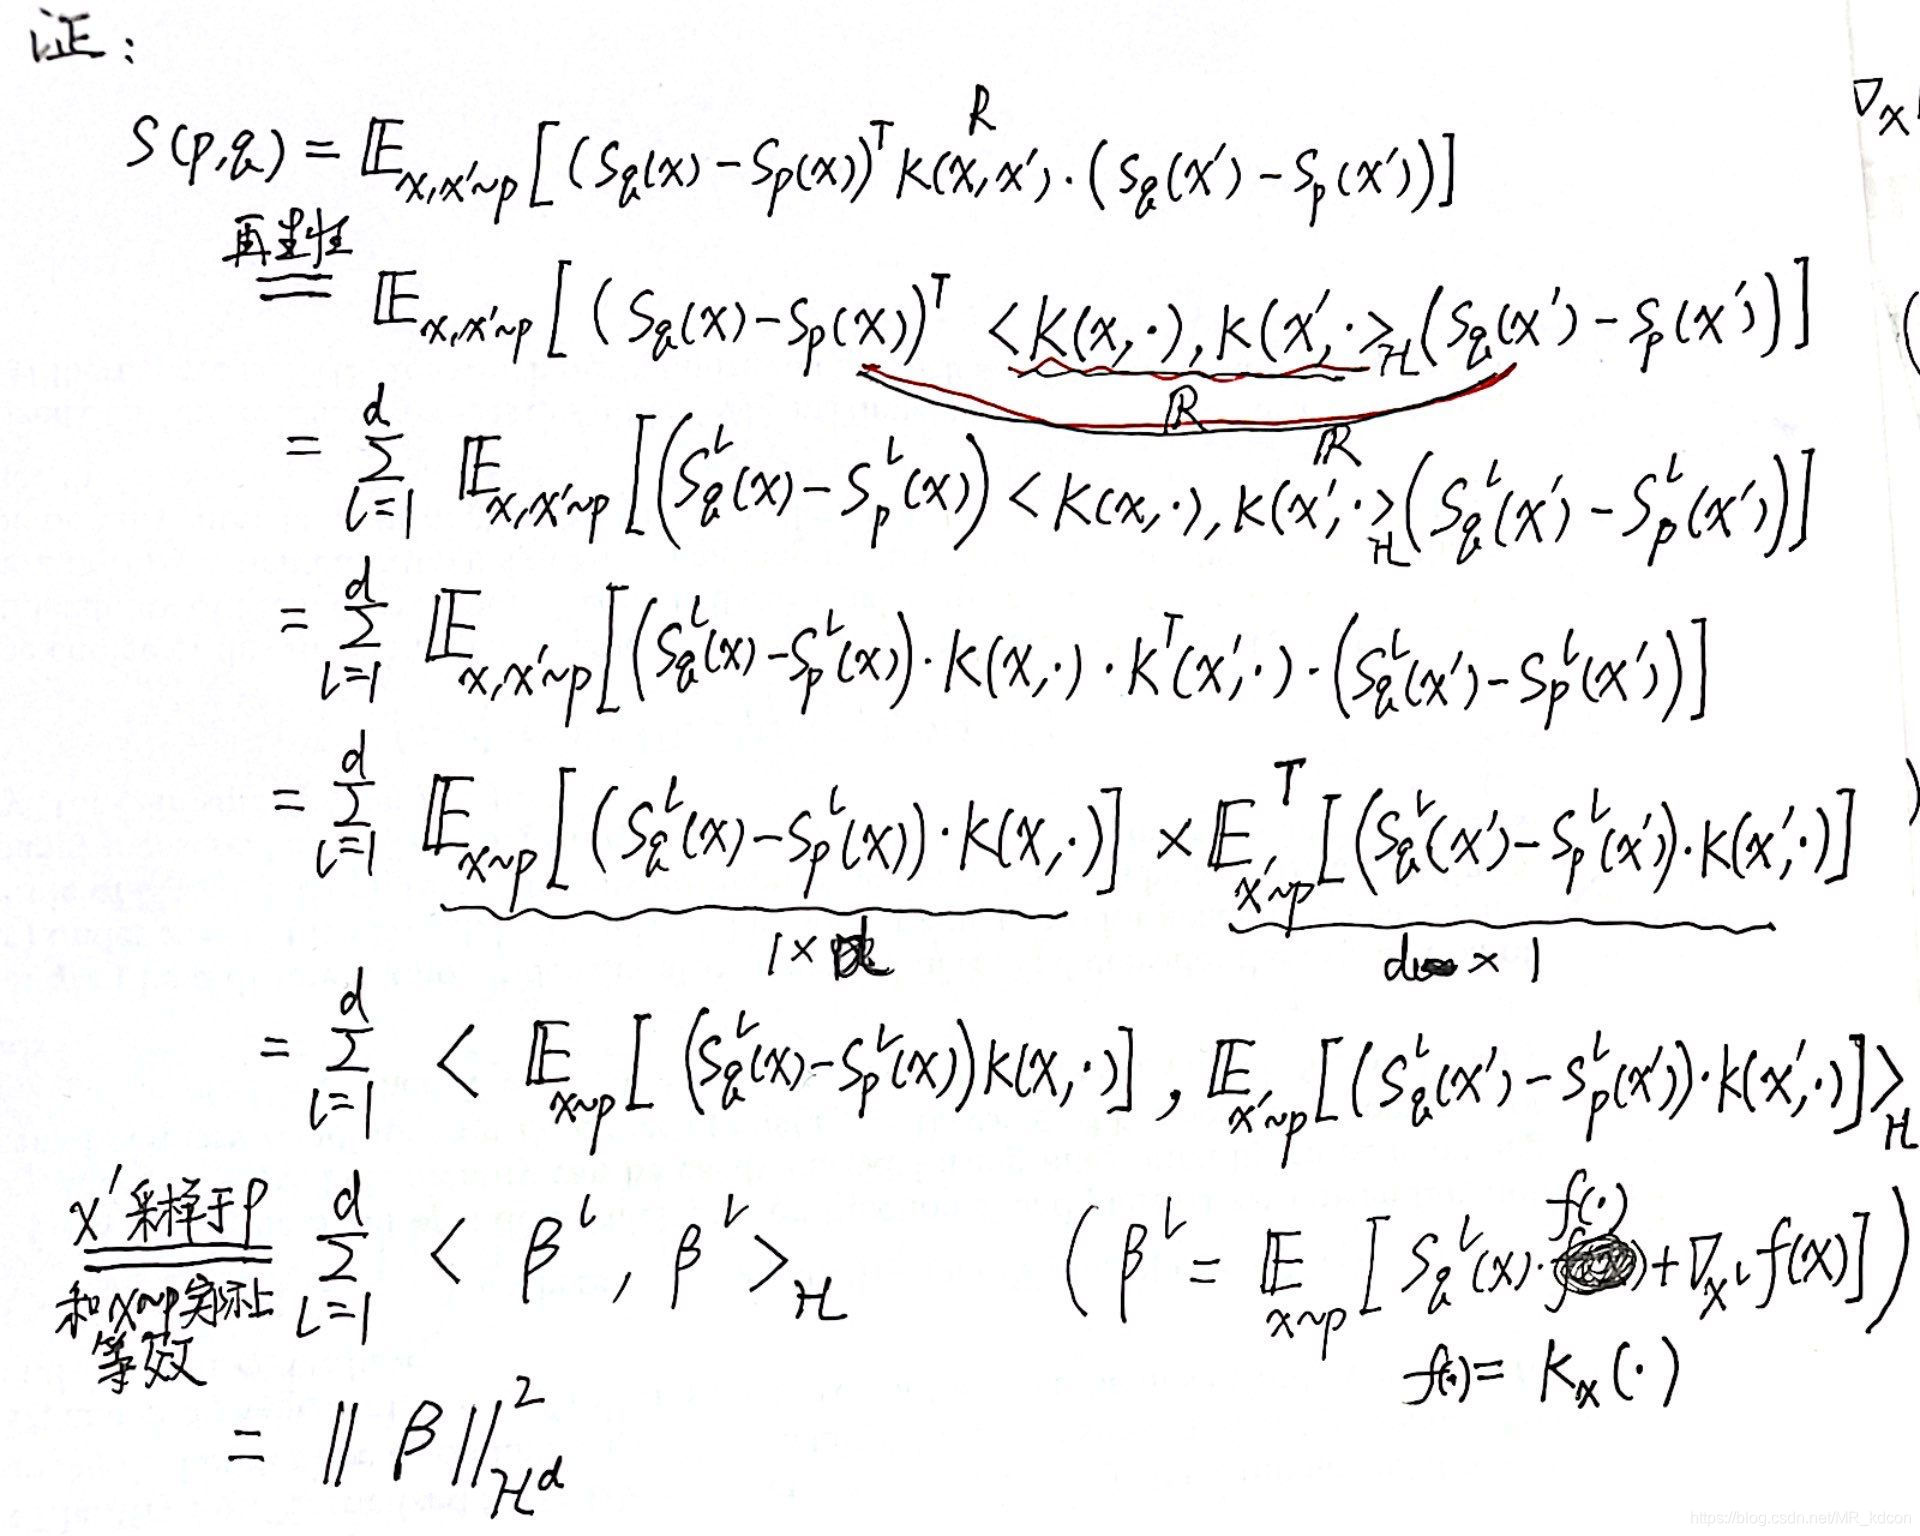 证：
S(p,q) = 𝔼_{x,x'~p}[(S_q(x) − S_p(x))^T k(x,x')·(S_q(x') − S_p(x'))]
R
∇x
再生性
= 𝔼_{x,x'~p}[(S_q(x) − S_p(x))^T <k(x,·), k(x',·>_H (S_q(x') − S_p(x'))]
(
ℝ
= Σ_{l=1}^d 𝔼_{x,x'~p}[(S_q^l(x) − S_p^l(x)) <k(x,·), k(x',·>_H (S_q^l(x') − S_p^l(x'))]
ℝ
= Σ_{l=1}^d 𝔼_{x,x'~p}[(S_q^l(x) − S_p^l(x))·k(x,·)·k^T(x',·)·(S_q^l(x') − S_p^l(x'))]
= Σ_{l=1}^d 𝔼_{x~p}[(S_q^l(x) − S_p^l(x))·k(x,·)] × 𝔼^T_{x'~p}[(S_q^l(x') − S_p^l(x'))·k(x',·)]
)
1 × d
d × 1
= Σ_{l=1}^d < 𝔼_{x~p}[(S_q^l(x) − S_p^l(x))k(x,·)], 𝔼_{x'~p}[(S_q^l(x') − S_p^l(x'))·k(x',·)]>_H
x'采样于p
= Σ_{l=1}^d < β^l, β^l >_H (β^l = 𝔼_{x~p}[S_q^l(x)·f(·) + ∇_{x^l} f(x)])
和x~p实际上
等效
f(·) = k_x(·)
= ||β||²_{H^d}
https://blog.csdn.net/MR_kdcon